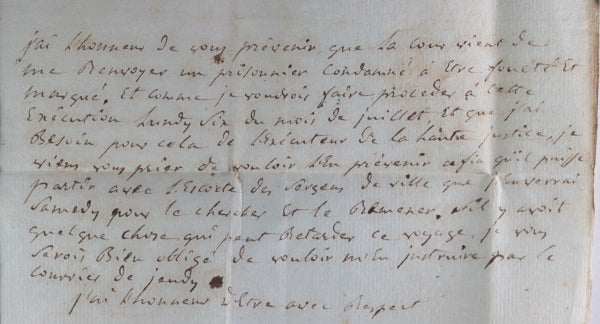 j'ai L'honneur de vous prévenir que La Cour vient de
me Renvoyer un prisonnier Condamné à Etre foueté Et
marqué. Et comme je voudrois faire procéder à Cette
Exécution Lundy Six du mois de juillet Et que j'ai
Besoin pour cela de L'Exécuteur de la haute justice, je
viens vous prier de vouloir L'En prévenir afin qu'il puisse
partir avec L'Escorte des Sergens de ville que j'Enverrai
Samedy pour le chercher Et le Ramener. S'il y avoit
quelque chose qui peut Retarder ce voyage, je vous
Serois Bien obligé de vouloir m'En instruire par le
Courrier de jeudy
j'ai L'honneur d'Etre avec Respect